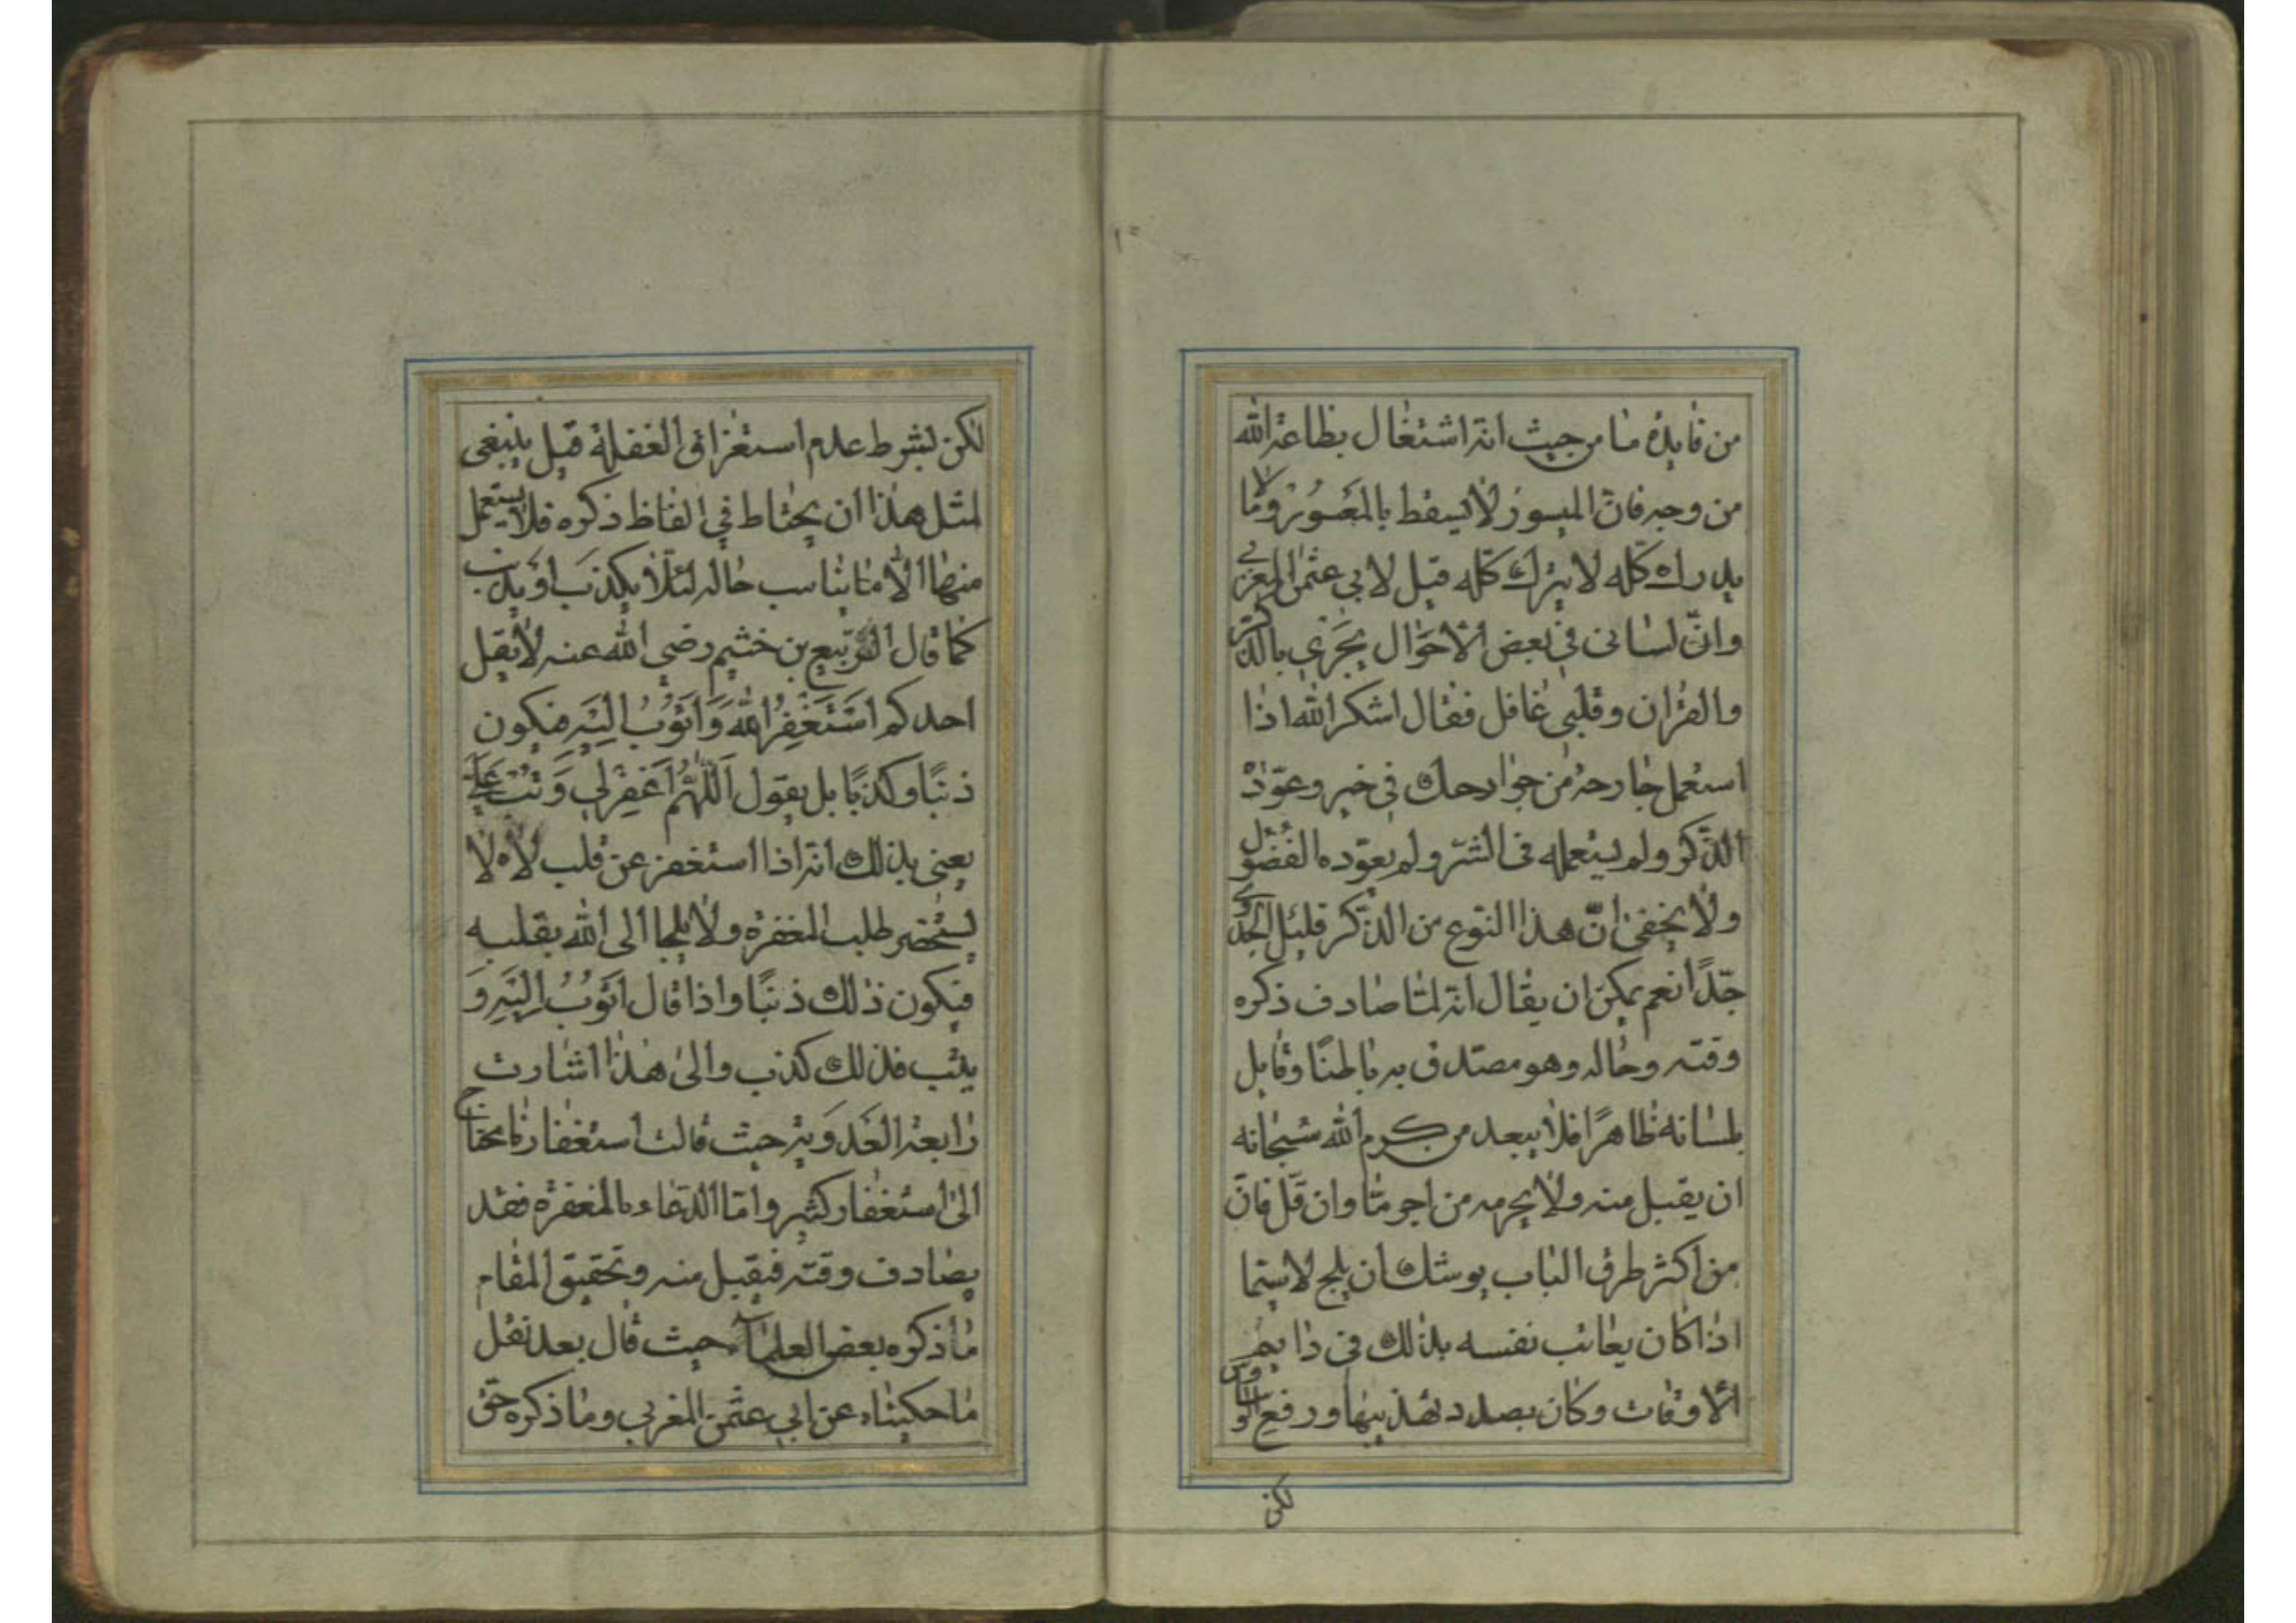 من فایدة ما من حیث انّه اشتغال بطاعة الله
من وجه فانّ المیسور لا یسقط بالمعسور وما لا
یدرك كلّه لا یترك كلّه قیل لابی عثمن المغربی
وانّ لسانی فی بعض الاحوال یجری بالذّكر
والقران وقلبی غافل فقال اشكر الله اذا
استعمل جارحة من جوارحك فی خیر وعوّد
الذّكر ولم یستعمله فی الشر ولم یعوّده الفضول
ولا یخفی انّ هذا النّوع من الذّكر قلیل الجدوی
جدًّا نعم یمكن ان یقال انّه لمّا صادف ذكره
وقته وحاله وهو مصدّق به باطنًا وقایل
بلسانه ظاهرًا فلا یبعد من كرم الله سبحانه
ان یقبل منه ولا یحرمه من اجر مّا وان قلّ فانّ
من اكثر طرق الباب یوشك ان یلج لا سیّما
اذا كان یعاتب نفسه بذلك فی دایم
الاوقات وكان بصدد تهذیبها ورفع الوساوس
لكن
لكن بشرط عدم استغراق الغفلة قیل ینبغی
لمثل هذا ان یحتاط فی الفاظ ذكره فلا یستعمل
منها الّا ما یناسب حاله لئلّا یكذب او یذنب
كما قال الرّبیع بن خثیم رضی الله عنه لا یقل
احدكم اَسْتَغْفِرُ اللهَ وَاَتُوْبُ اِلَیْهِ فیكون
ذنبًا وكذبًا بل یقول اَللّٰهُمَّ اغْفِرْ لِی وَتُبْ عَلَیَّ
یعنی بذلك انّه اذا استغفر عن قلب لاه لا
یستحضر طلب المغفرة ولا یلجا الی الله بقلبه
فیكون ذلك ذنبًا واذا قال اَتُوْبُ اِلَیْهِ وَ
یتب فذلك كذب والی هذا اشارت
رابعة العَدَوِیّة حیث قالت استغفارنا یحتاج
الی استغفار كثیر وامّا الدّعاء بالمغفرة فقد
یصادف وقته فیقبل منه وتحقیق المقام
ما ذكره بعض العلمآء حیث قال بعد نقل
ما حكیناه عن ابی عثمن المغربی وما ذكره حقّ